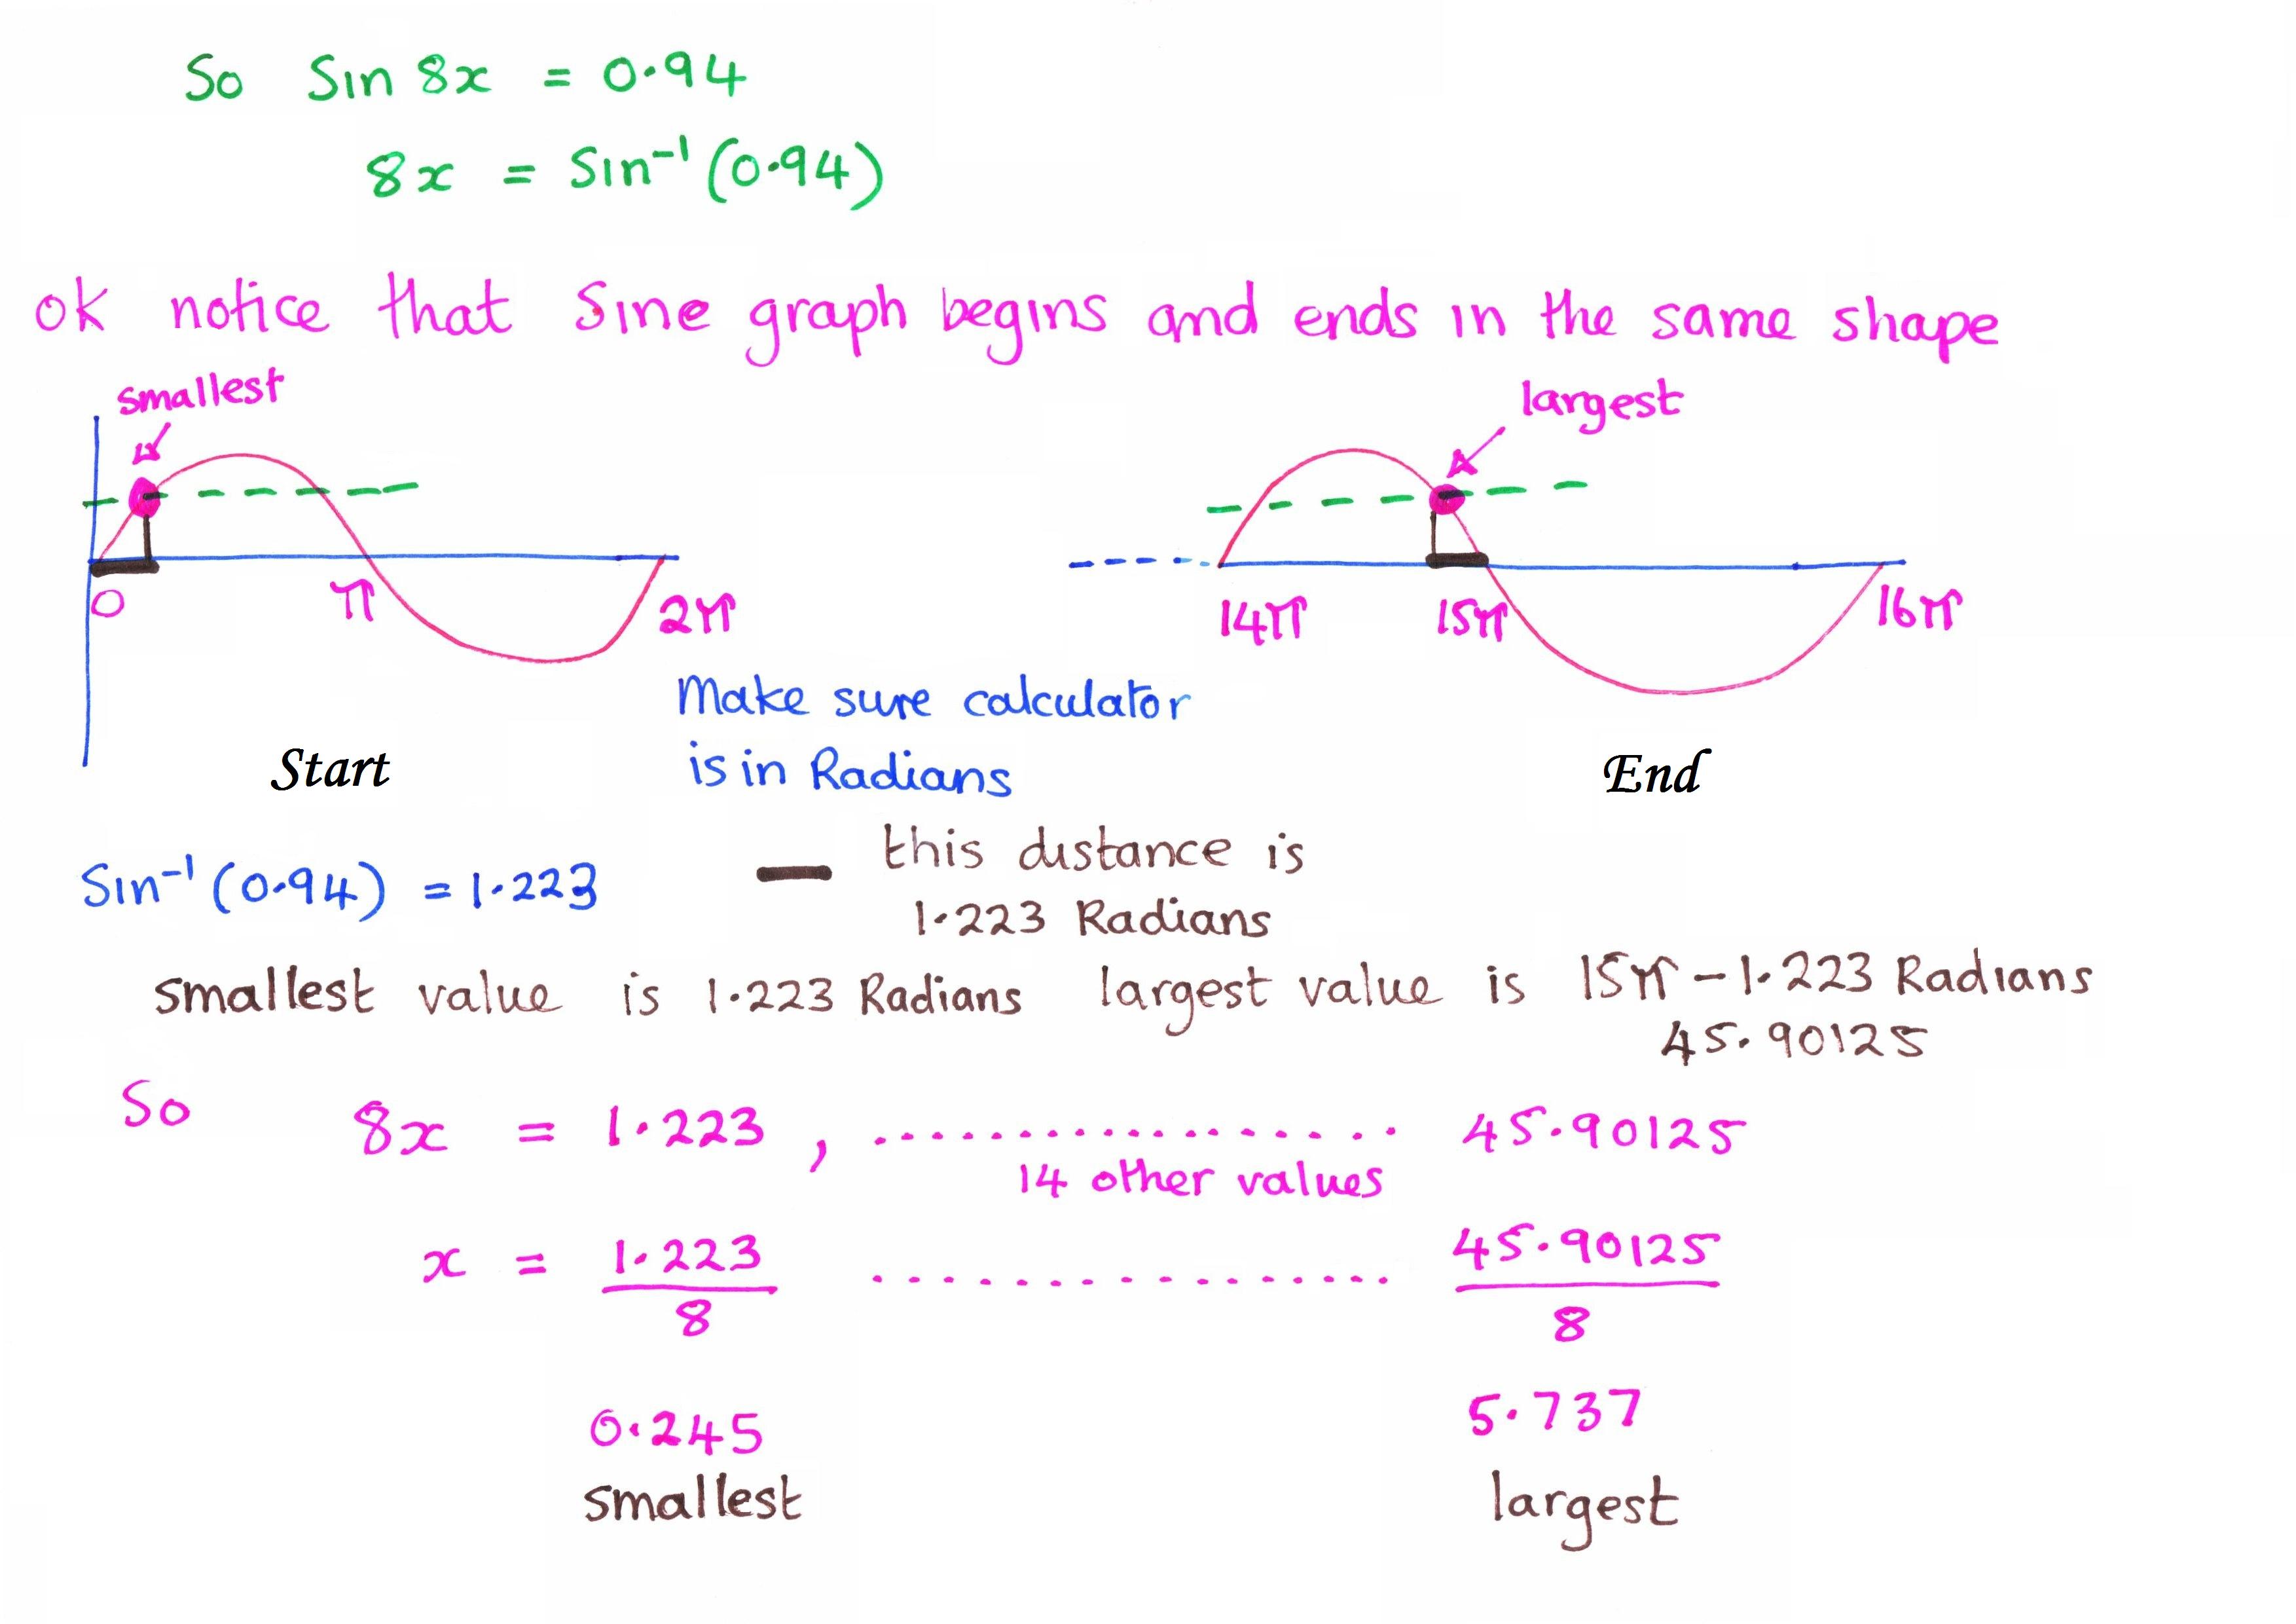 So Sin 8x = 0.94
8x = Sin⁻¹ (0.94)
ok notice that Sine graph begins and ends in the same shape
smallest
largest
0 π 2π
14π 15π 16π
Make sure calculator
is in Radians
Start
End
Sin⁻¹ (0.94) = 1.223
this distance is
1.223 Radians
smallest value is 1.223 Radians
largest value is 15π - 1.223 Radians
45.90125
So 8x = 1.223 , .................. 45.90125
14 other values
x = 1.223/8 ............... 45.90125/8
0.245 5.737
smallest largest